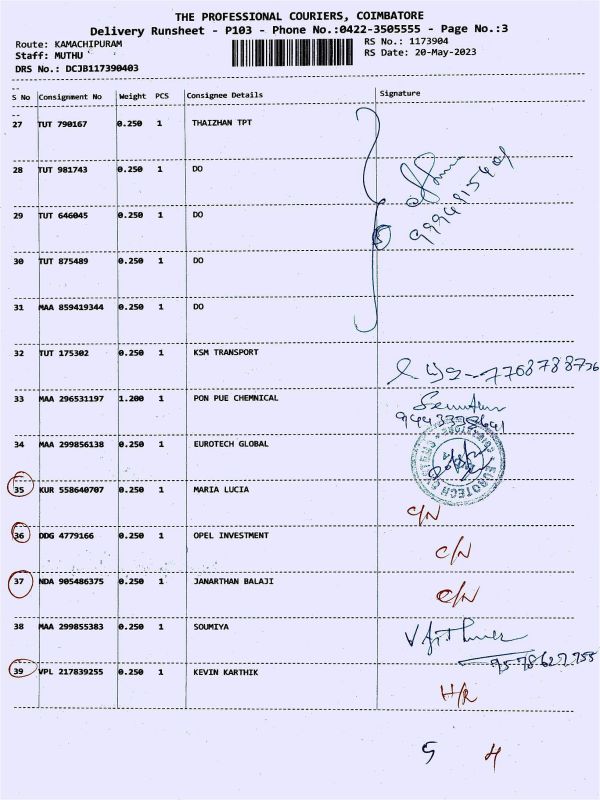 THE PROFESSIONAL COURIERS, COIMBATORE
Delivery Runsheet - P103 - Phone No.:0422-3505555 - Page No.:3
Route: KAMACHIPURAM RS No.: 1173904
Staff: MUTHU RS Date: 20-May-2023
DRS No.: DCJB117390403
S No Consignment No Weight PCS Consignee Details Signature
27 TUT 790167 0.250 1 THAIZHAN TPT
28 TUT 981743 0.250 1 DO
29 TUT 646045 0.250 1 DO
5
30 TUT 875489 0.250 1 DO
31 MAA 859419344 0.250 1 DO
32 TUT 175302 0.250 1 KSM TRANSPORT
33 MAA 296531197 1.200 1 PON PUE CHEMNICAL
34 MAA 299856138 0.250 1 EUROTECH GLOBAL
35 KUR 558640707 0.250 1 MARIA LUCIA C/N
36 DDG 4779166 0.250 1 OPEL INVESTMENT C/N
37 NDA 905486375 0.250 1 JANARTHAN BALAJI C/N
38 MAA 299855383 0.250 1 SOUMIYA
39 VPL 217839255 0.250 1 KEVIN KARTHIK H/R
5 4